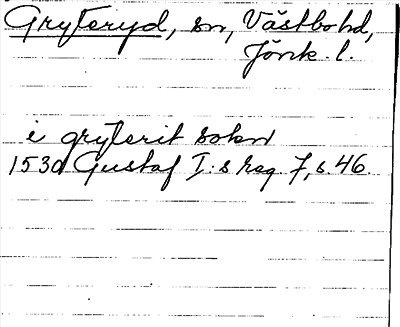 Gryteryd, sn, Västbo hd,
Jönk. l.
i gryterit sokn
1530 Gustaf I:s reg 7, s. 46.